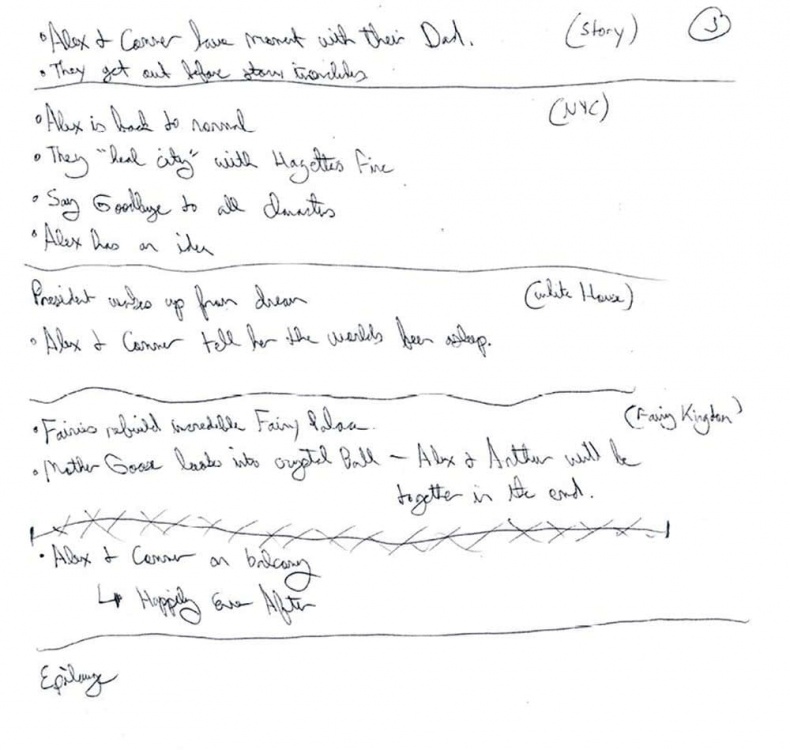 • Alex & Conner have moment with their Dad. (Story) 3
• They get out before story
• Alex is back to normal (NYC)
• They "heal city" with Hagettas Fire
• Say Goodbye to all characters
• Alex has an idea
President wakes up from dream (White House)
• Alex & Conner tell her the worlds been asleep.
• Fairies rebuild incredible Fairy Palace. (Fairy Kingdom)
• Mother Goose looks into crystal Ball – Alex & Arthur will be
together in the end.
• Alex & Conner on balcony
↳ Happily Ever After
Epilouge